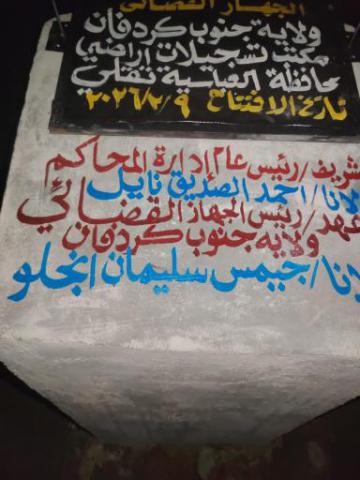 الجهاز القضائي
ولاية جنوب كردفان
مكتب تسجيلات اراضي
محافظة العباسية تقلي
تاريخ الافتتاح ٢٠٢٦/٢/٩
تشريف/رئيس عام إدارة المحاكم
لانا/احمد الصديق نايل
عهد/رئيس الجهاز القضائي
ولايه جنوب كردفان
لانا/جيمس سليمان انجلو